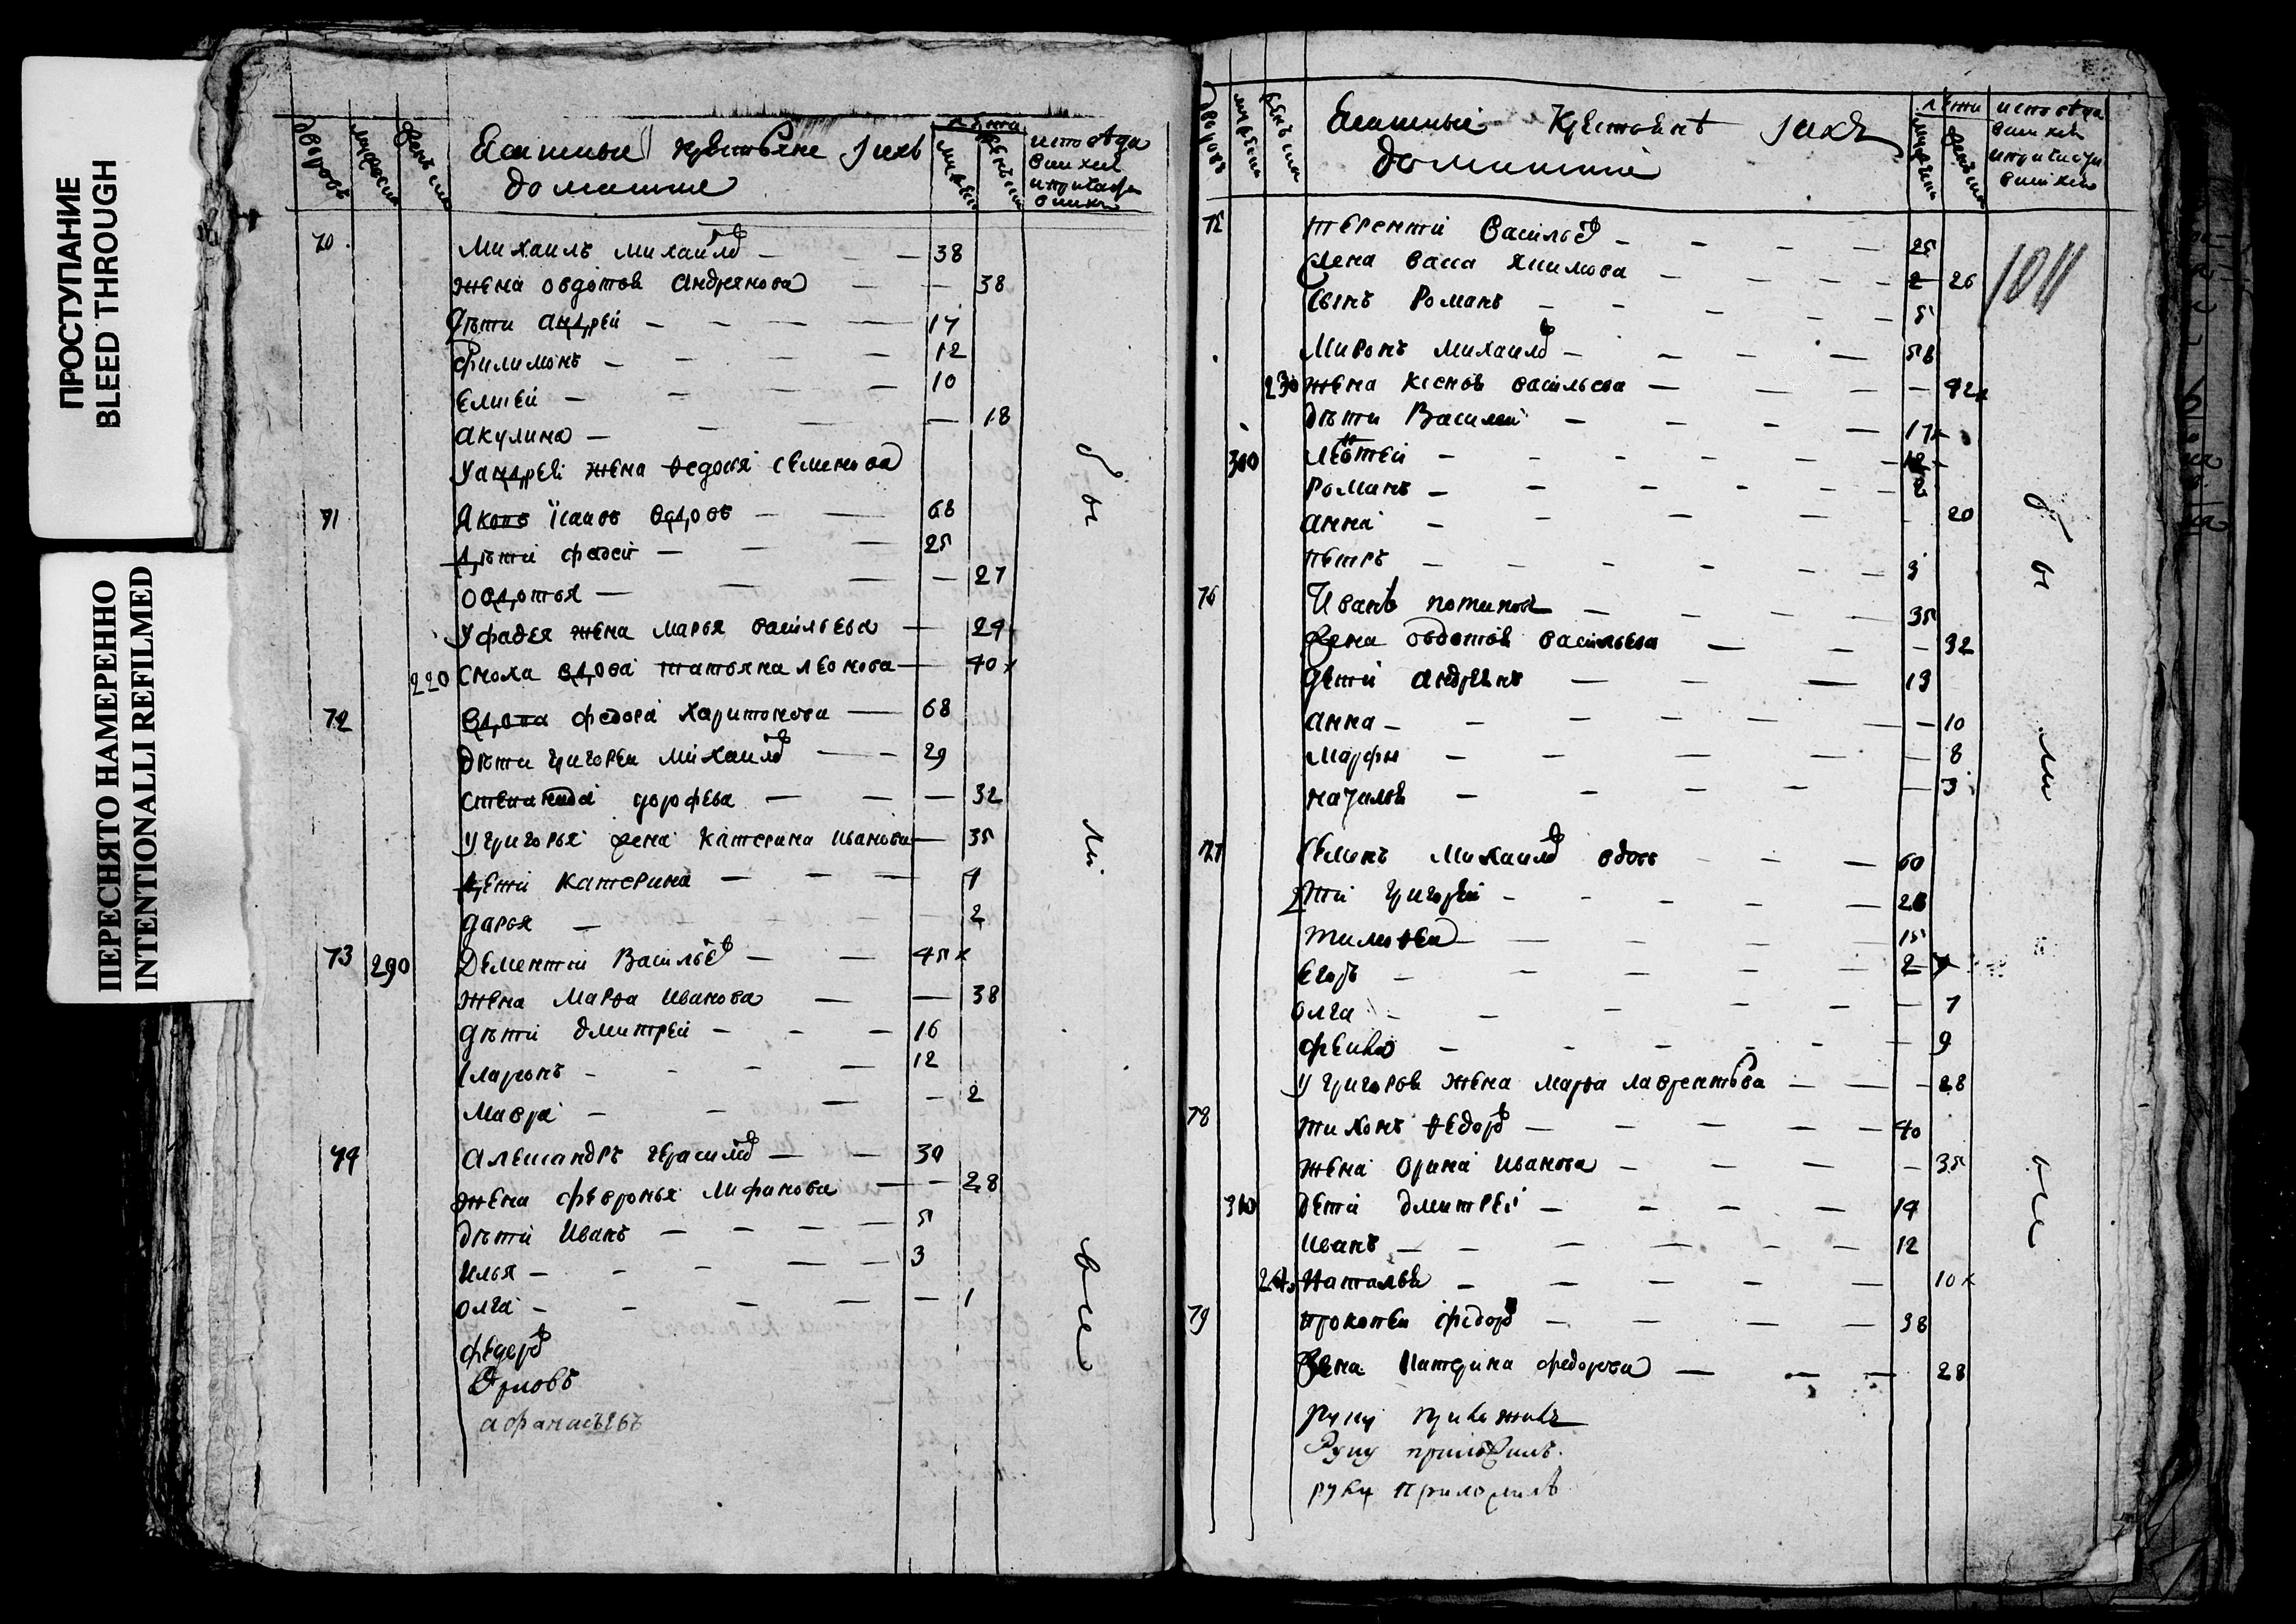 ПРОСТУПАНИЕ
BLEED THROUGH
ПЕРЕСНЯТО НАМЕРЕННО
INTENTIONALLI REFILMED
дворовъ
мужеска
женъска
крестьяне ихъ
домашние
лѣта
мужеска
женъска
70 Михаилъ Михаиловъ — — — 38
жена овдотья Андреянова — — 38
дѣти андрей — — — — 17
филимонъ — — — 12
елисей — — — 10
акулина — — — — 18
у андрея жена ѳедосья семенова
71 Яковъ вдовъ — — 68
дѣти фадей — — — 25
овдотья — — — — 27
у фадея жена марья васильева — 24
220 сноха вдова татьяна леонова — 40
72 вдова федора харитонова — 68
дѣти григореи Михаиловъ — — 29
степанида дорофева — — — 32
у григорья жена катерина иванова — 35
дети катерина — — —
дарья — — — 2
73 290 Дементии Васильевъ — — 45
жена Марѳа Иванова — — 38
дѣти дмитрей — — — 16
ларионъ — — — — 12
мавра — — — — 2
74 Александръ герасимовъ — — 30
жена февронья — — 28
дѣти Иванъ — — — — 5
илья — — — — — 3
олга — — — — — 1
федоръ
Орловъ
афанасьевъ
бы
ли
все
дворовъ
мужеска
женъска
ихъ
домашние
лѣта
мужеска
75 терентии Васильевъ — — — — 25
жена васа якимова — — — — 26
сынъ Романъ — — — — — 5
Миронъ Михаиловъ — — — — 58
230 жена васильева — — — — 42
дѣти Василей — — — — 17
300
Романъ — — — — — 2
анна — — — — — 20
петръ — — — — — — 3
76 Иванъ потаповъ — — — — 35
жена овдотья васильева — — — 32
дети андреянъ — — — 13
анна — — — — — — 10
марфы — — — — — 8
наталья — — — — — 3
77 семенъ Михаиловъ вдовъ — — — 60
дѣти григорей — — — — — 28
тимоѳеи — — — — — 15
егоръ — — — — — 2
олга — — — — — 7
фекла — — — — — — 9
у григорья жена марѳа лаврентьева — — — 28
78 тихонъ ѳедоровъ — — — — — 40
жена орина иванова — — — — — 35
310 дети дмитреи — — — — 14
иванъ — — — — — — 12
Наталья — — — — — 10
79 прокопеи федоровъ — — — — 38
жена катерина федорова — — — 28
руку приложилъ
Руку приложилъ
руку приложилъ
бы
ли
все